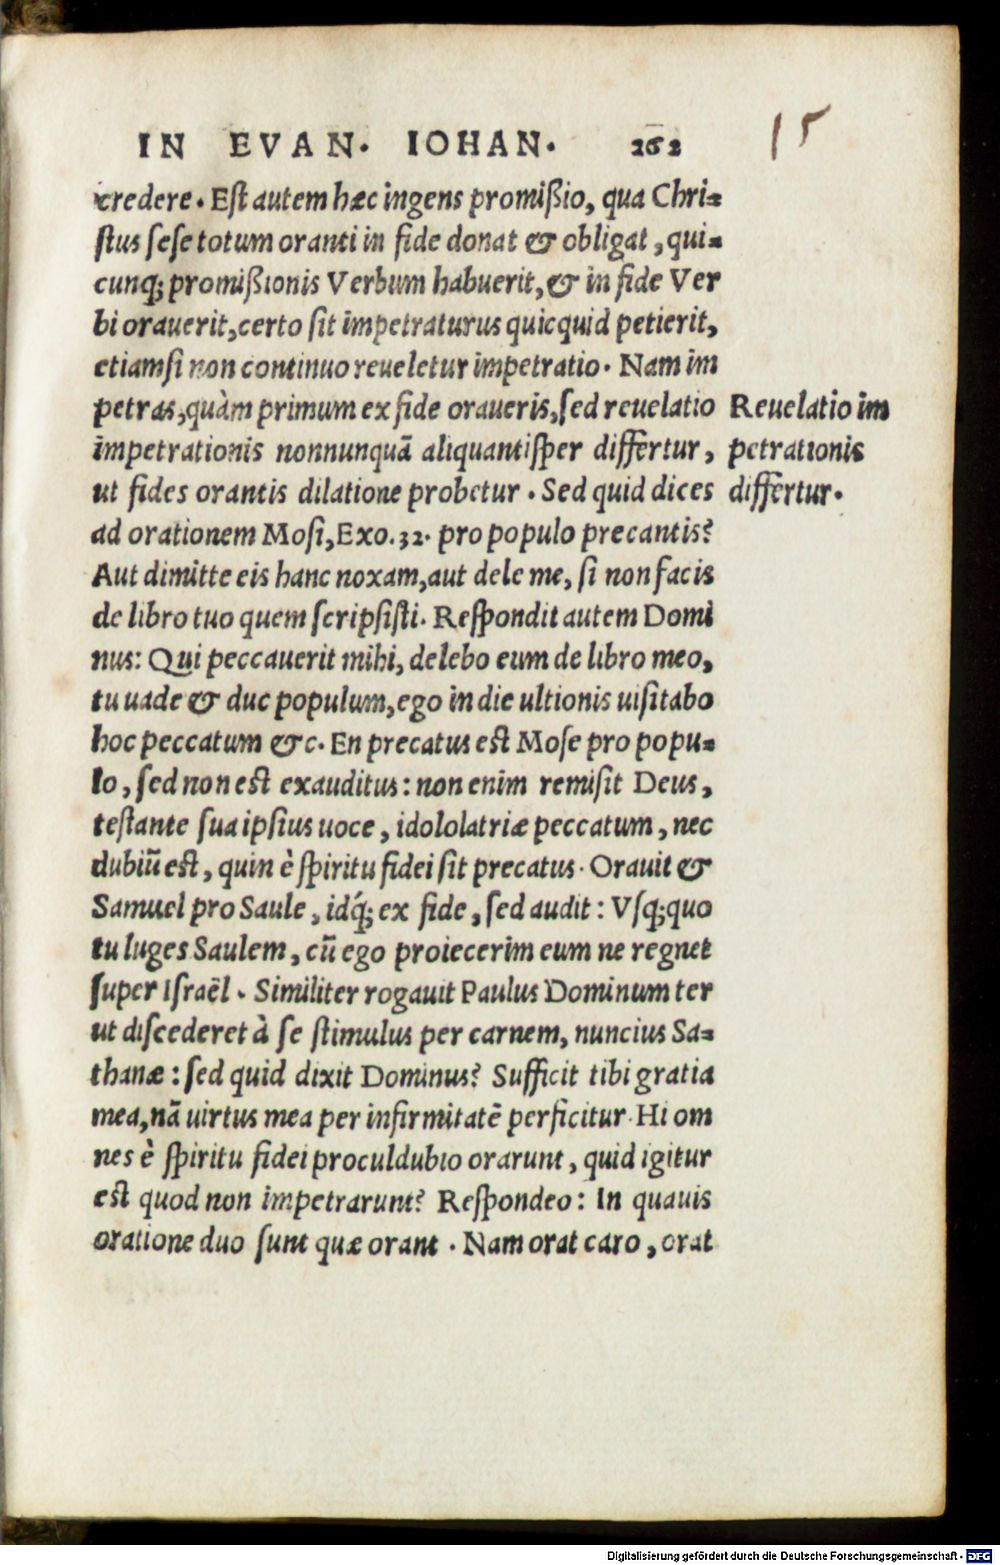 IN EVAN. IOHAN. 262
15
credere. Est autem hæc ingens promißio, qua Chri=
stus sese totum oranti in fide donat & obligat, qui=
cunq; promißionis Verbum habuerit, & in fide Ver
bi orauerit, certo sit impetraturus quicquid petierit,
etiamsi non continuo reueletur impetratio. Nam im
petras, quàm primum ex fide oraueris, sed reuelatio
impetrationis nonnunquā aliquantisper differtur,
ut fides orantis dilatione probetur. Sed quid dices
ad orationem Mosi, Exo. 32. pro populo precantis?
Aut dimitte eis hanc noxam, aut dele me, si non facis
de libro tuo quem scripsisti. Respondit autem Domi
nus: Qui peccauerit mihi, delebo eum de libro meo,
tu uade & duc populum, ego in die ultionis uisitabo
hoc peccatum &c. En precatus est Mose pro popu=
lo, sed non est exauditus: non enim remisit Deus,
testante sua ipsius uoce, idololatriæ peccatum, nec
dubiū est, quin è spiritu fidei sit precatus. Orauit &
Samuel pro Saule, idq́; ex fide, sed audit: Vsq; quo
tu luges Saulem, cū ego proiecerim eum ne regnet
super Israël. Similiter rogauit Paulus Dominum ter
ut discederet à se stimulus per carnem, nuncius Sa=
thanæ: sed quid dixit Dominus? Sufficit tibi gratia
mea, nā uirtus mea per infirmitatē perficitur. Hi om
nes è spiritu fidei proculdubio orarunt, quid igitur
est quod non impetrarunt? Respondeo: In quauis
oratione duo sunt quæ orant. Nam orat caro, orat
Reuelatio im
petrationis
differtur.
Digitalisierung gefördert durch die Deutsche Forschungsgemeinschaft - DFG